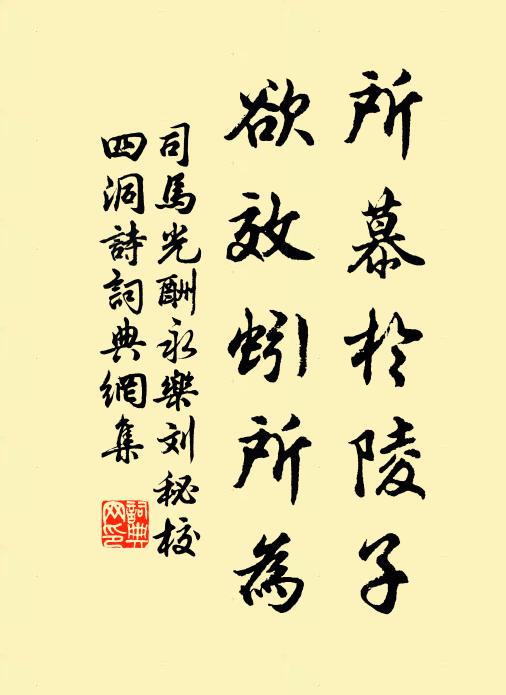 所慕於陵子
欲效蚓所為
司馬光酬永樂刘秘校
四洞詩詞典網集
詞典
网印